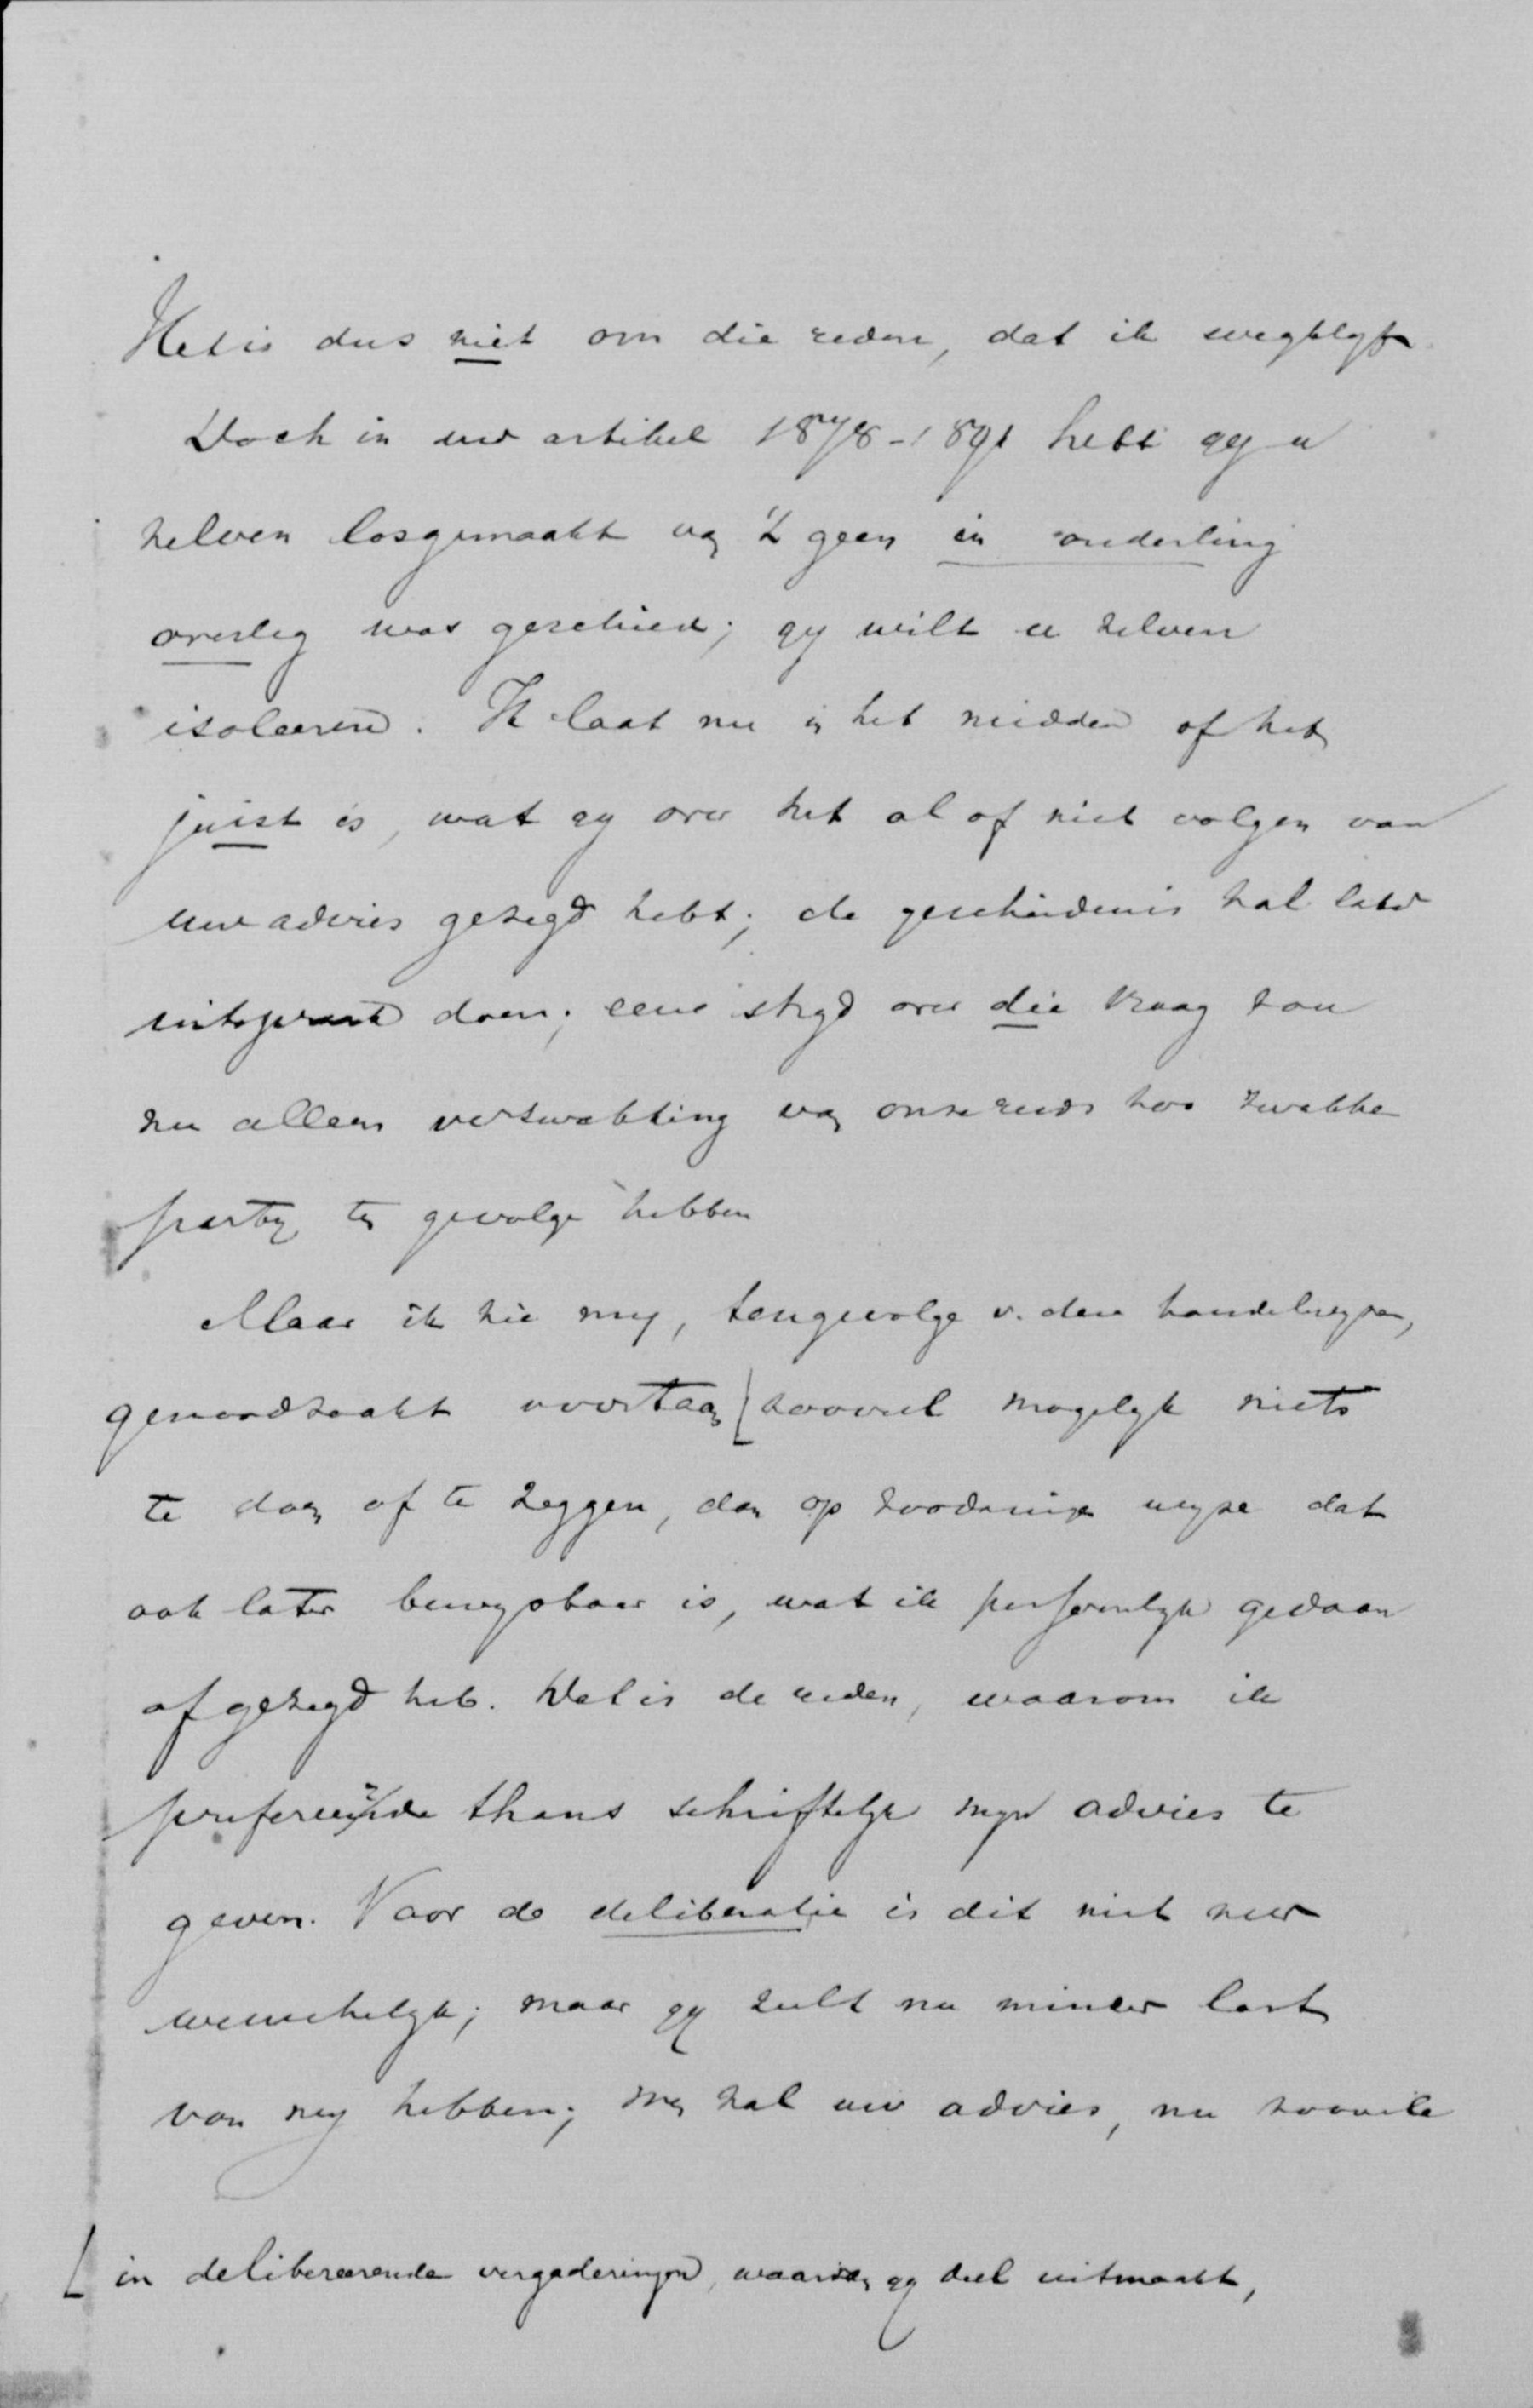 Het is dus niet om die reden, dat ik wegblyf.
Doch in uw artikel 1878-1891 hebt gy u
zelven losgemaakt van 't geen in onderling
overleg was geschied; gy wilt u zelven
isoleeren. Ik laat nu in het midden of het
juist is, wat gy over het al of niet volgen van
uw advies gezegd hebt; de geschiedenis zal later
uitspraak doen; eene stryd over die vraag zou
nu alleen verzwakking van onze reeds zoo zwakke
party ten gevolge hebben
Maar ik zie my, tengevolge v. dere handelwyze,
genoodzaakt voortaan [ zooveel mogelyk niets
te doen of te zeggen, dan op zoodanige wyze dat
ook later bewysbaar is, wat ik persoonlyk gedaan
of gezegd heb. Det is de reden, waarom ik
prefereerde thans schriftelyk myn advies te
geven. Voor de deliberatie is dit niet zeer
wenschelyk; maar gy zult nu minder last
van my hebben; my zal uw advies, nu zoovele
[ in delibereerende vergaderingen, waarvan gy deel uitmaakt,